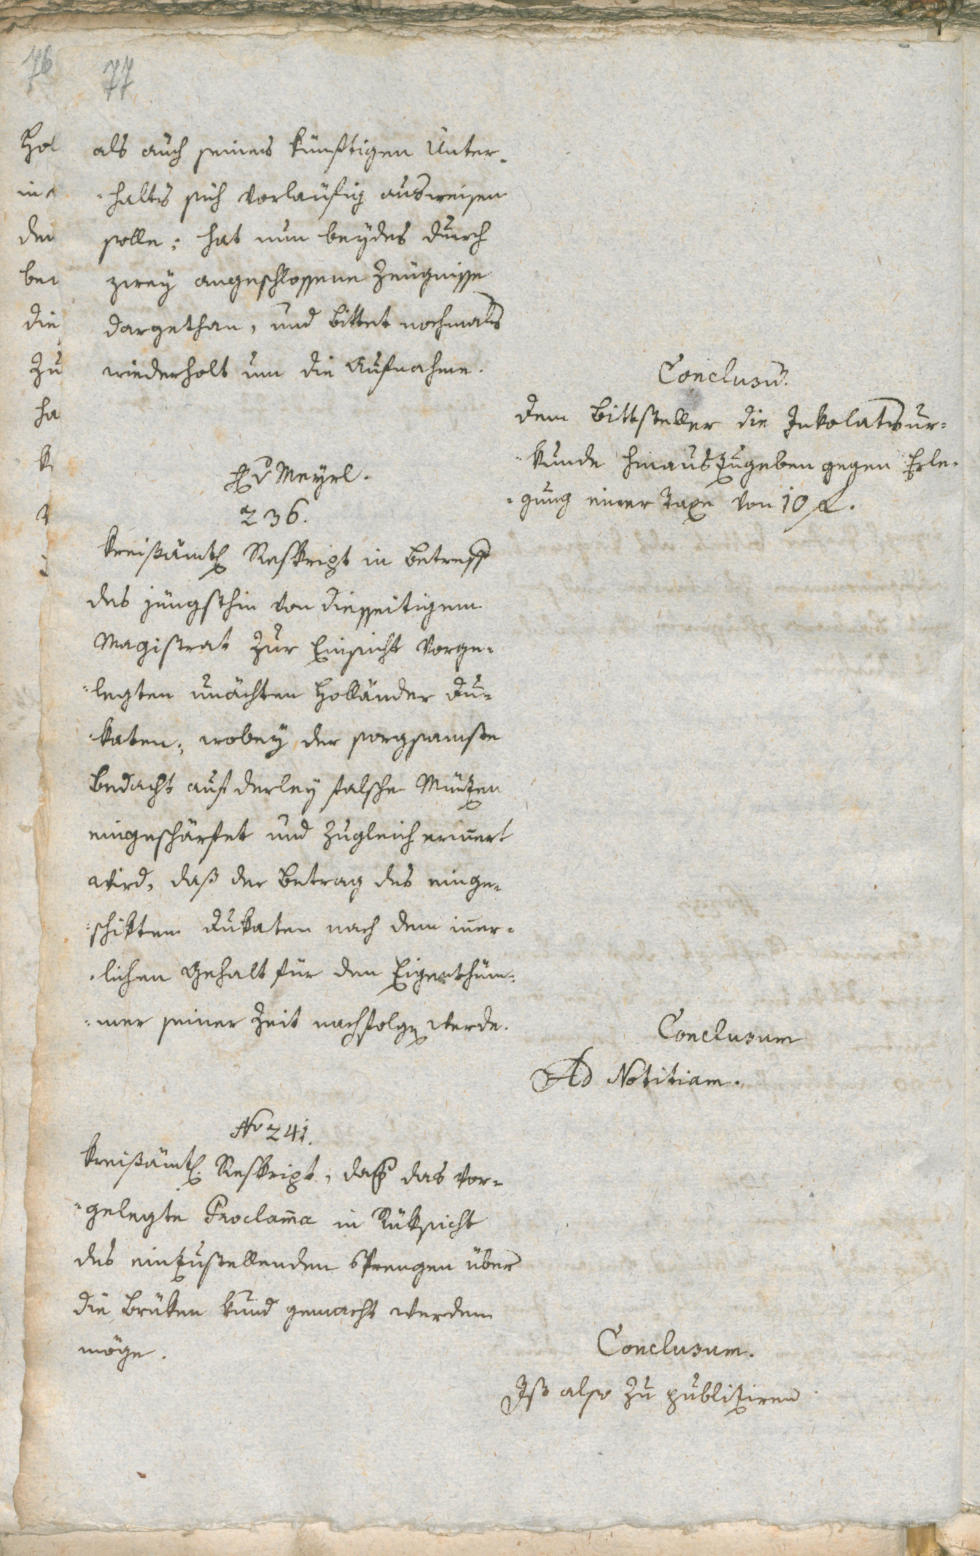 77
als auch seines künftigen Unter-
-halts sich vorläufig ausweisen
solle; hat nun beydes durch
zwey angeschlossene Zeugnisse
dargethan, und bittet nochmals
wiederholt um die Aufnahme.
Conclusū.
Dem Bittsteller die Inkolatsur-
-kunde hinauszugeben gegen Erle-
-gung einer Taxe von 10 f.
H v Meyrl.
236.
Kreißämtl. Reskript in Betreff
des jüngsthin von diesseitigem
Magistrat zur Einsicht vorge-
-legten unächten Holländer Du-
-katen; wobey der sorgsamste
Bedacht auf derley falsche Münzen
eingeschärfet und zugleich erinnert
wird, daß der Betrag des einge-
-schikten Dukaten nach dem inner-
-lichen Gehalt für den Eigenthüm-
-mer seiner Zeit nachfolgen werde.
Conclusum
Ad Notitiam.
No 241.
Kreißämtl. Reskript, daß das vor-
-gelegte Proclama in Rüksicht
des einzustellenden Sprengen über
die Brüken kund gemacht werden
möge.
Conclusum.
Ist also zu publiziren
76
Hol
in
den
bei
die
zu
ha